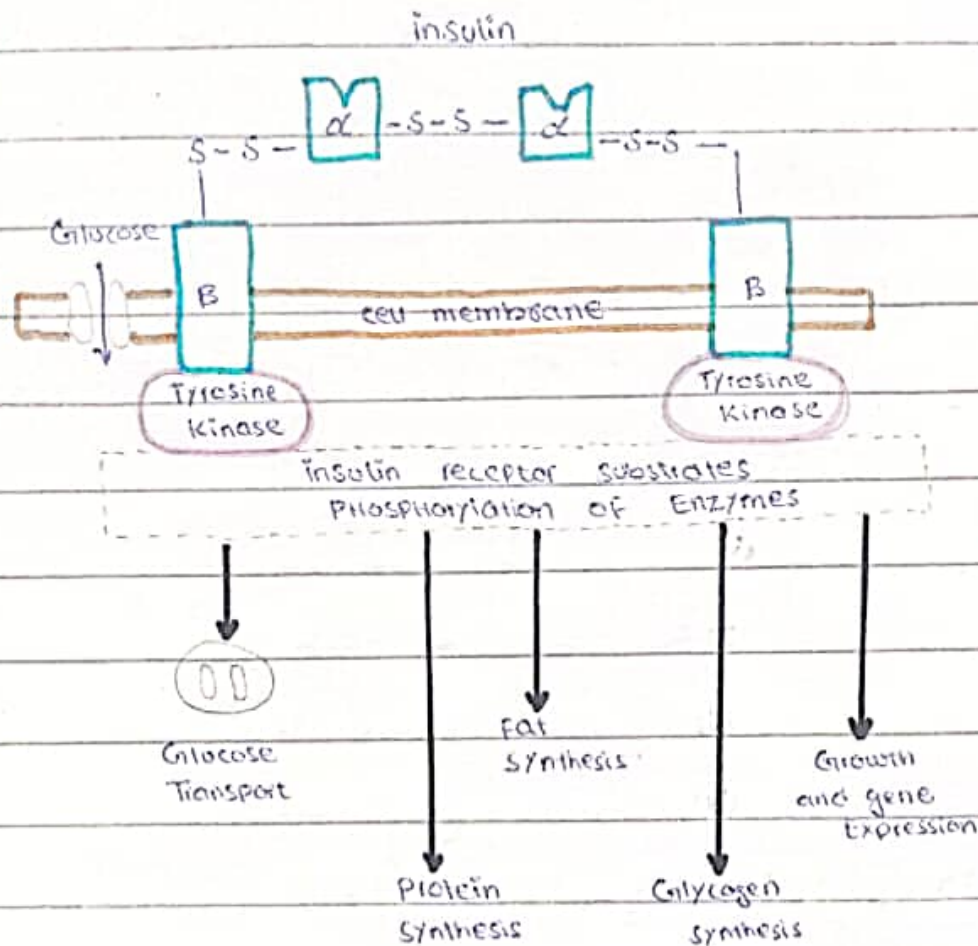 insulin
α -S-S- α
S-S- -S-S-
Glucose
B B
cell membrane
Tyrosine Tyrosine
Kinase Kinase
insulin receptor substrates
Phosphorylation of Enzymes
Glucose
Transport
Fat
synthesis
Growth
and gene
Expression
Protein
synthesis
Glycogen
synthesis